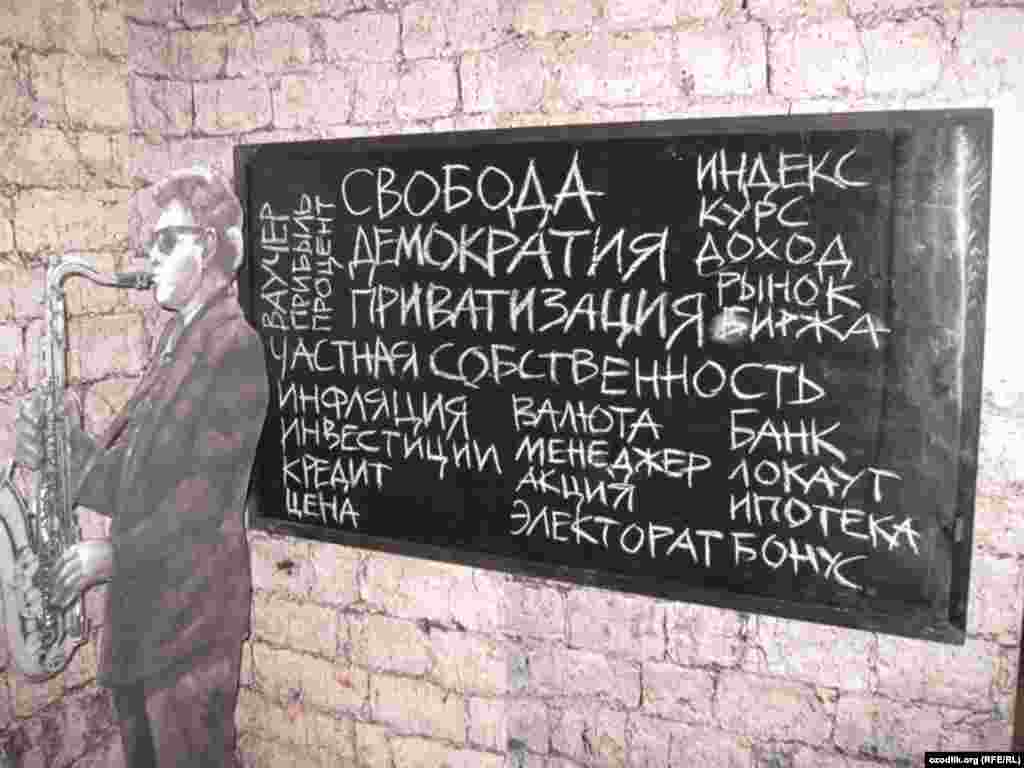 ВАУЧЕР
ПРИБЫЛЬ
ПРОЦЕНТ
СВОБОДА
ДЕМОКРАТИЯ
ПРИВАТИЗАЦИЯ
ИНДЕКС
КУРС
ДОХОД
РЫНОК
БИРЖА
ЧАСТНАЯ СОБСТВЕННОСТЬ
ИНФЛЯЦИЯ
ИНВЕСТИЦИИ
КРЕДИТ
ЦЕНА
ВАЛЮТА
МЕНЕДЖЕР
АКЦИЯ
ЭЛЕКТОРАТ
БАНК
ЛОКАУТ
ИПОТЕКА
БОНУС
ozodlik.org (RFE/RL)